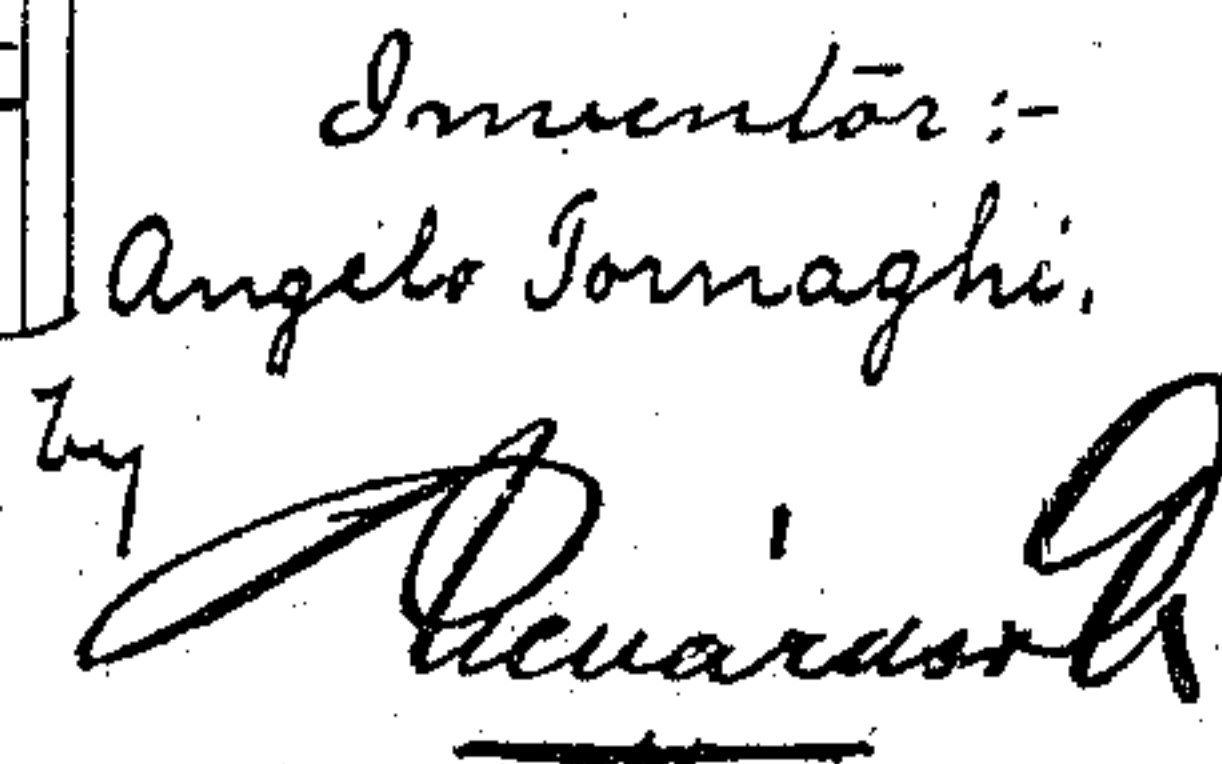 Inventor :-
Angelo Tornaghi.
by